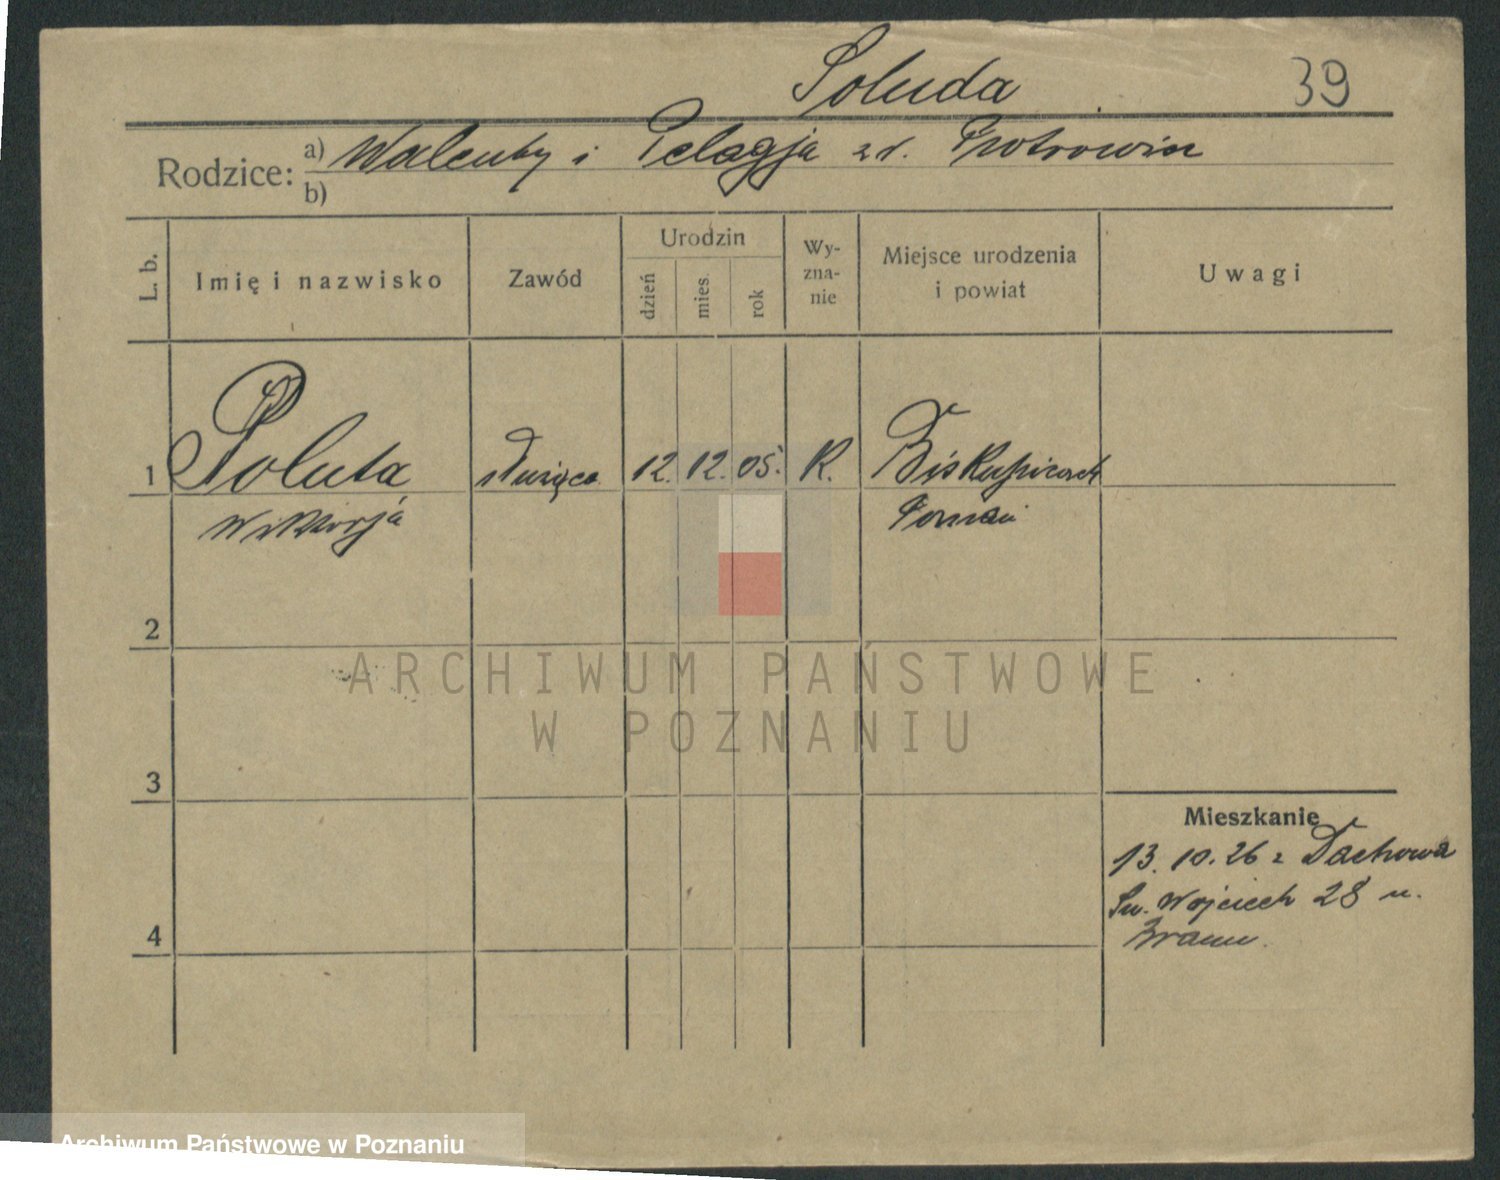 Poluda 39
Rodzice: a) Walenty i Pelagja z d. Piotrowicz
b)
L. b. Imię i nazwisko Zawód Urodzin dzień mies. rok Wy-zna-nie Miejsce urodzenia i powiat Uwagi
1 Poluta służąca 12. 12. 05. R. Biskupicach
Wiktorja Poznań
2
3
Mieszkanie
13. 10. 26 z Dachowa
Św. Wojciech 28 u.
4
ARCHIWUM PAŃSTWOWE
W POZNANIU
Archiwum Państwowe w Poznaniu